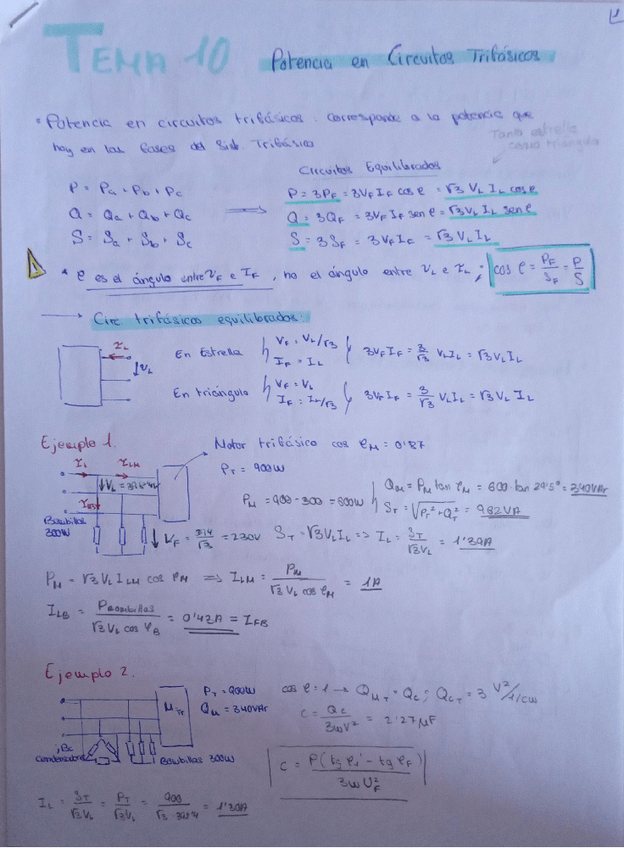 1
TEMA 10 Potencia en Circuitos Trifásicos.
• Potencia en circuitos trifásicos: corresponde a la potencia que
hay en las fases del Trifásico
Tanto estrella
como triángulo
Circuitos Equilibrados
P = Pa + Pb + Pc
P = 3PF = 3VF IF cos φ = √3 VL IL cos φ
Q = Qa + Qb + Qc
Q = 3QF = 3VF IF sen φ = √3 VL IL sen φ
S = Sa + Sb + Sc
S = 3SF = 3VF IF = √3 VL IL
* φ es el ángulo entre VF e IF, no el ángulo entre VL e IL; cos φ = PF/SF = P/S
→ Circ trifásicos equilibrados:
IL
VL
En Estrella { VF = VL/√3 IF = IL { 3VF IF = 3/√3 VL IL = √3 VL IL
En triángulo { VF = VL IF = IL/√3 { 3VF IF = 3/√3 VL IL = √3 VL IL
Ejemplo 1.
Motor trifásico cos φM = 0'87
PT = 900W
IL ILM
PM = 900 - 300 = 600W { QM = PM tan φM = 600 · tan 29'5° = 340VAr
ST = √PT² + QT² = 962VA
Bombillas
300W
= 230V
ST = √3 VL IL => IL = ST/√3VL = 1'39A
PM = √3 VL ILM cos φM => ILM = PM/√3 VL cos φM = 1A
ILB = PBombillas/√3 VL cos φB = 0'42A = IFB
Ejemplo 2.
MTr
PT = 900W
QM = 340VAr
cos φ = 1 → QMT = QC; QCT = 3 V²/1/CW
C = QC/3WV² = 2'27μF
condensadores
Bombillas 300W
C = P(tg φi - tg φF)/3W UF²
IL = ST/√3VL = PT/√3VL = 900/√3 · = 1'30A